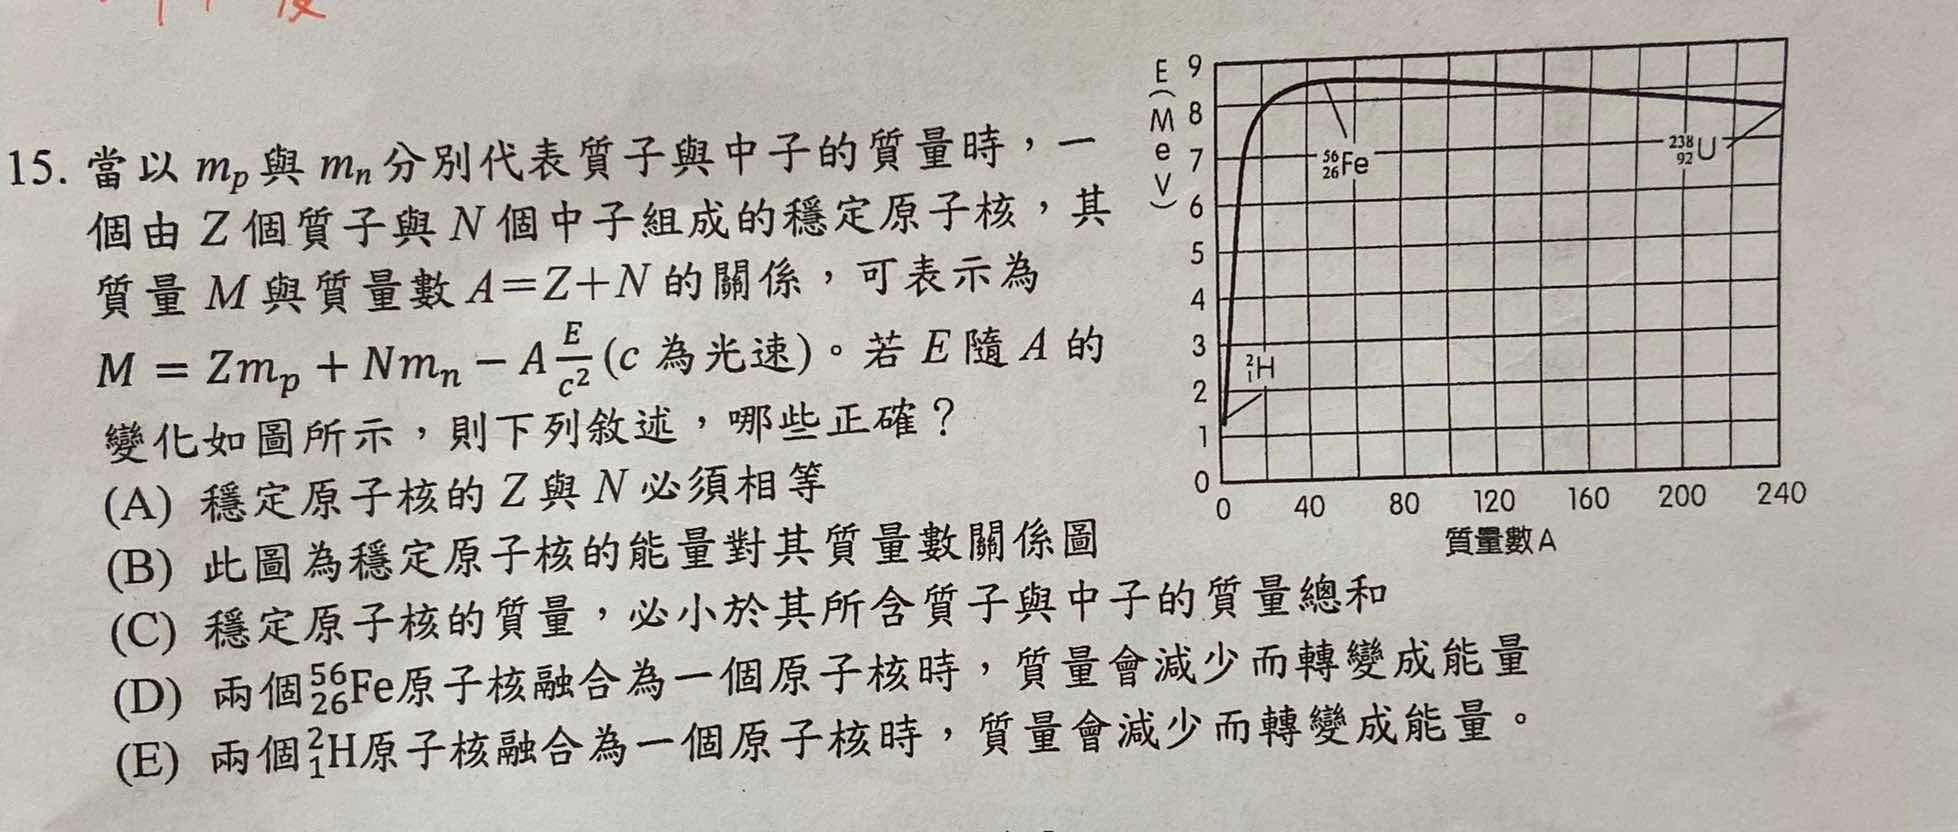 15. 當以 mₚ 與 mₙ 分別代表質子與中子的質量時，一
個由 Z 個質子與 N 個中子組成的穩定原子核，其
質量 M 與質量數 A＝Z＋N 的關係，可表示為
M = Zmₚ + Nmₙ − A E/c² (c 為光速)。若 E 隨 A 的
變化如圖所示，則下列敘述，哪些正確？
(A) 穩定原子核的 Z 與 N 必須相等
(B) 此圖為穩定原子核的能量對其質量數關係圖
(C) 穩定原子核的質量，必小於其所含質子與中子的質量總和
(D) 兩個⁵⁶₂₆Fe原子核融合為一個原子核時，質量會減少而轉變成能量
(E) 兩個²₁H原子核融合為一個原子核時，質量會減少而轉變成能量。
E（MeV）
9
8
7
6
5
4
3
2
1
0
⁵⁶₂₆Fe
²³⁸₉₂U
²₁H
0 40 80 120 160 200 240
質量數A